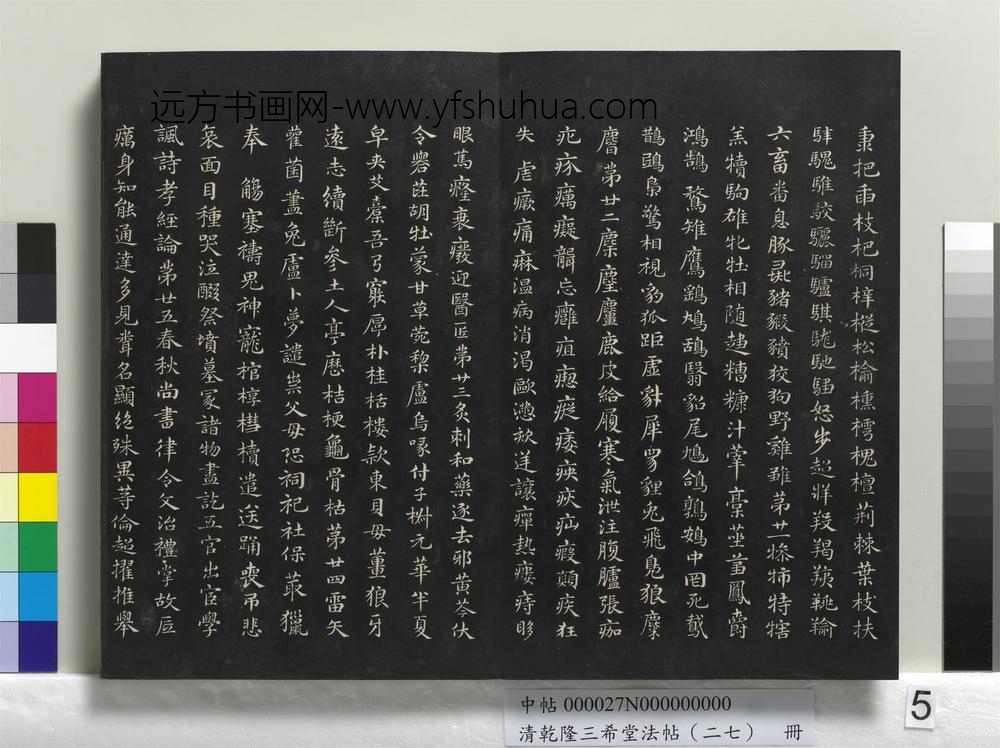 秉把臿枝杷桐梓樅松榆橁樗槐檀荊棘葉枝扶
騂騩騅駮驪騮驢騏駹馳怒步超牂羖羯羠羭
六畜番息豚彘豬豭豶狡狗野雞雛第廿一㹀㸬特犗
羔犢駒雄牝牡相隨趨糟糠汁滓稾莝芻鳳爵
鴻鵠鶩雉鷹鷂鳩鴟翳貂尾鳩鴿鶉鴳中罔死鳶
鵲鴟梟驚相視豹狐距虛豺犀兕貍兔飛鳧狼麋
麏第廿二麋麈麖鹿皮給履寒氣泄注腹臚張痂
疕疥癘癡聾忘癰疽瘛瘲痿疾疢疝瘕顛疾狂
失虐瘚痛痳溫病消渴歐懣欬逆讓癉熱瘻痔眵
眼篤癃衰癈迎醫匠第廿三灸刺和藥逐去邪黃芩伏
令礜茈胡牡蒙甘草菀梨盧烏喙付子椒元華半夏
皁夾艾橐吾弓窮厚朴桂栝樓款東貝母薑狼牙
遠志續斷參土人亭歷桔梗龜骨枯第廿四雷矢
雚菌藎兔盧卜夢譴祟父母恐祠祀社保叢獵
奉 觴塞禱鬼神寵棺椁槥櫝遣送踊喪吊悲
哀面目種哭泣醊祭墳墓冢諸物盡訖五官出宦學
諷詩孝經論第廿五春秋尚書律令文治禮掌故砥
癘身知能通達多見聞名顯絕殊異等倫超擢推舉
远方书画网-www.yfshuhua.com
中帖 000027N000000000
清乾隆三希堂法帖（二七） 冊
5